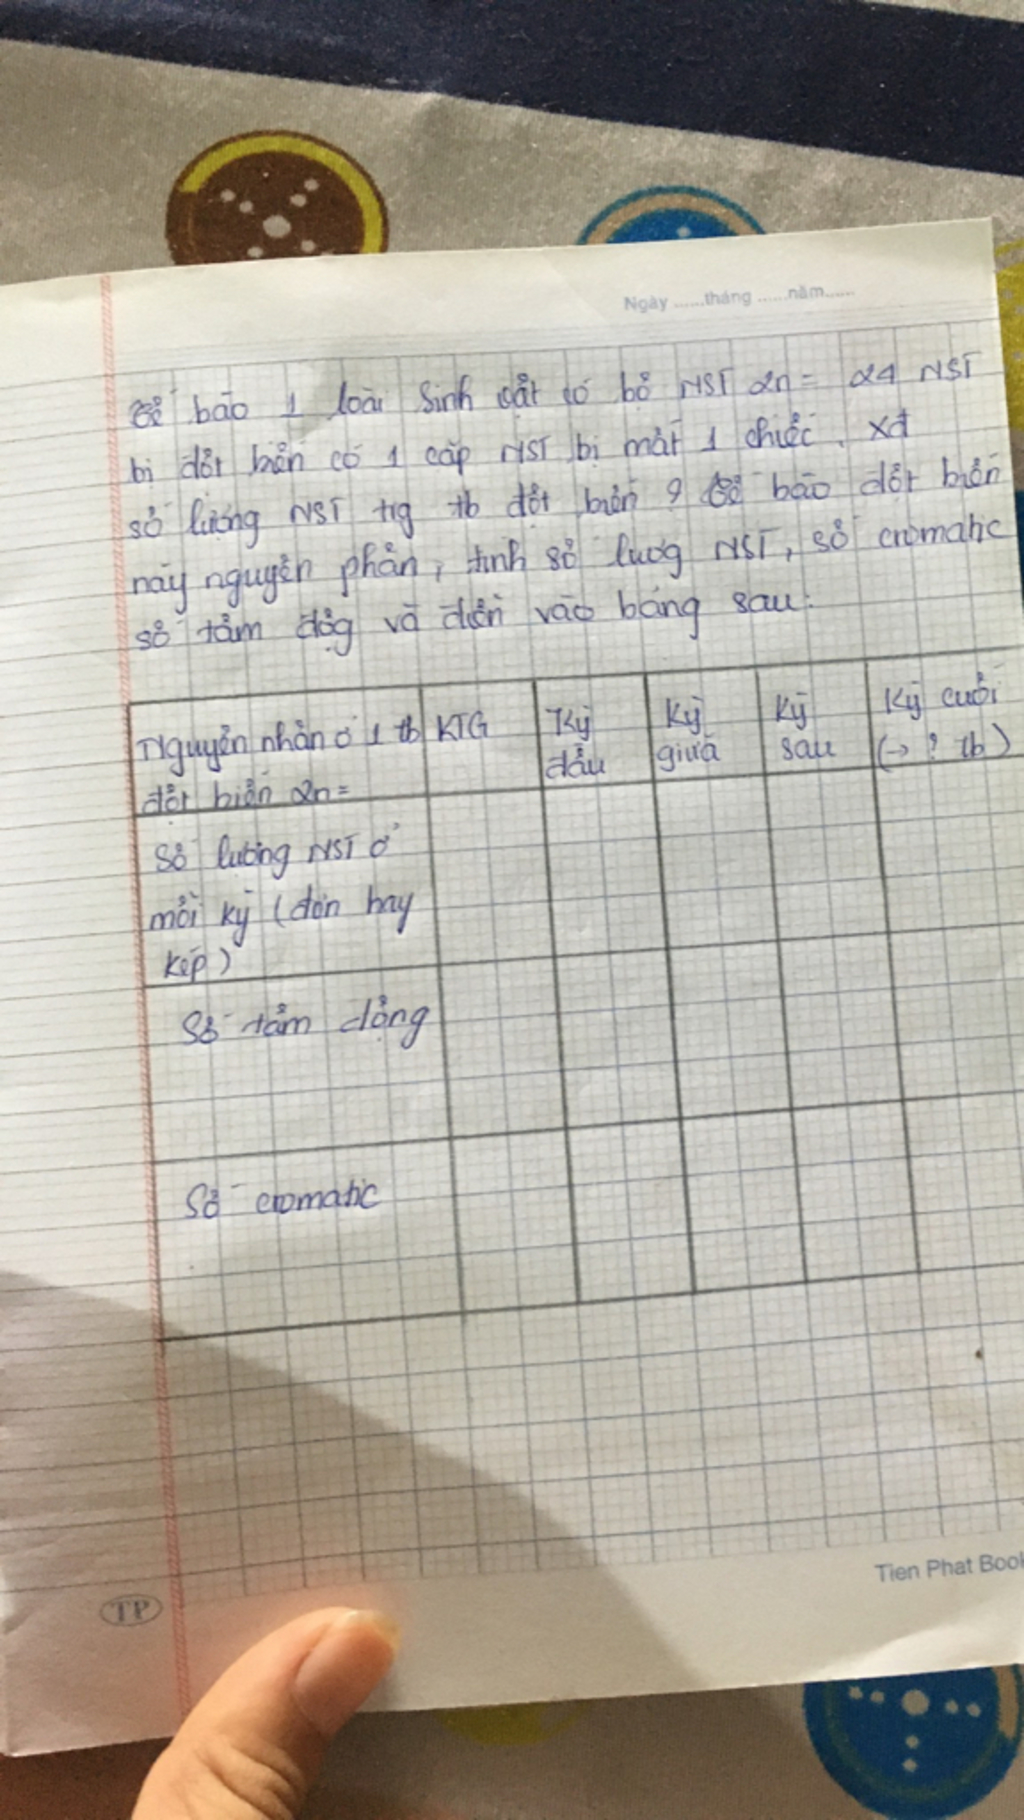 Ngày ......tháng ......năm......
Tế bào 1 loài sinh vật có bộ NST 2n = 24 NST
bị đột biến có 1 cặp NST bị mất 1 chiếc. Xđ
số lượng NST trg tb đột biến ? Tế bào đột biến
này nguyên phân, tính số lượg NST, số cromatic
số tâm độg và điền vào bảng sau:
Nguyên nhân ở 1 tb đột biến 2n=
KTG
Kỳ đầu
Kỳ giữa
Kỳ sau
Kỳ cuối (→ ? tb)
Số lượng NST ở
mỗi kỳ (đơn hay
kép)
Số tâm động
Số cromatic
Tien Phat Book
TP